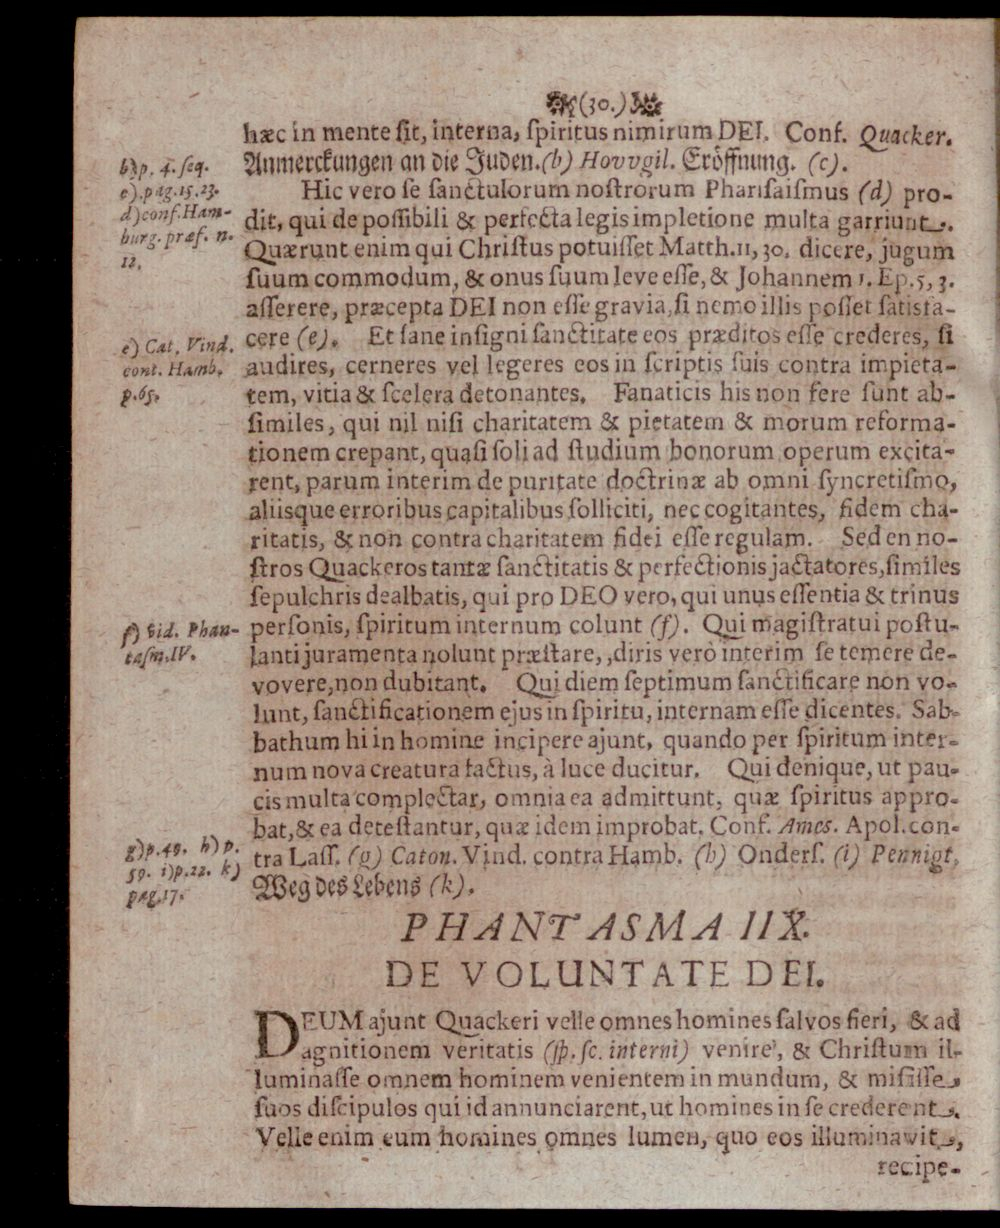 (30.)
hæc in mente ſit, interna, ſpiritus nimirum DEI. Conf. Quacker.
Anmerckungen an die Juden. (b) Hovvgil. Eröffnung. (c).
b) p. 4. ſeq.
c). pag. 15. 23.
d) conf. Ham-
burg. præf. n.
12.
Hic vero ſe ſanctulorum noſtrorum Phariſaiſmus (d) pro-
dit, qui de poſſibili & perfecta legis impletione multa garriunt.
Quærunt enim qui Chriſtus potuiſſet Matth. 11, 30. dicere, jugum
ſuum commodum, & onus ſuum leve eſſe, & Johannem 1. Ep. 5, 3.
aſſerere, præcepta DEI non eſſe gravia, ſi nemo illis poſſet ſatisfa-
cere (e). Et ſane inſigni ſanctitate eos præditos eſſe crederes, ſi
e) Cat. Vind.
cont. Hamb.
p. 65.
audires, cerneres vel legeres eos in ſcriptis ſuis contra impieta-
tem, vitia & ſcelera detonantes. Fanaticis his non fere ſunt ab-
ſimiles, qui nil niſi charitatem & pietatem & morum reforma-
tionem crepant, quaſi ſoli ad ſtudium bonorum operum excita-
rent, parum interim de puritate doctrinæ ab omni ſyncretiſmo,
aliisque erroribus capitalibus ſolliciti, nec cogitantes, fidem cha-
ritatis, & non contra charitatem fidei eſſe regulam. Sed en no-
ſtros Quackeros tantæ ſanctitatis & perfectionis jactatores, ſimiles
ſepulchris dealbatis, qui pro DEO vero, qui unus eſſentia & trinus
perſonis, ſpiritum internum colunt (f). Qui magiſtratui poſtu-
f) vid. Phan-
taſm. IV.
lanti juramenta nolunt præſtare, , diris verò interim ſe temere de-
vovere, non dubitant. Qui diem ſeptimum ſanctificare non vo-
lunt, ſanctificationem ejus in ſpiritu, internam eſſe dicentes. Sab-
bathum hi in homine incipere ajunt, quando per ſpiritum inter-
num nova creatura factus, à luce ducitur. Qui denique, ut pau-
cis multa complectar, omnia ea admittunt, quæ ſpiritus appro-
bat, & ea deteſtantur, quæ idem improbat. Conf. Ames. Apol. con-
tra Laſſ. (g) Caton. Vind. contra Hamb. (h) Onderſ. (i) Pennigt.
Weg des Lebens (k).
g) p. 49. h) p.
59. i) p. 22. k)
pag. 17.
PHANTASMA IIX.
DE VOLUNTATE DEI.
DEUM ajunt Quackeri velle omnes homines ſalvos fieri, & ad
agnitionem veritatis (ſp. ſc. interni) venire, & Chriſtum il-
luminaſſe omnem hominem venientem in mundum, & miſiſſe
ſuos diſcipulos qui id annunciarent, ut homines in ſe crederent.
Velle enim eum homines omnes lumen, quo eos illuminavit,
recipe-